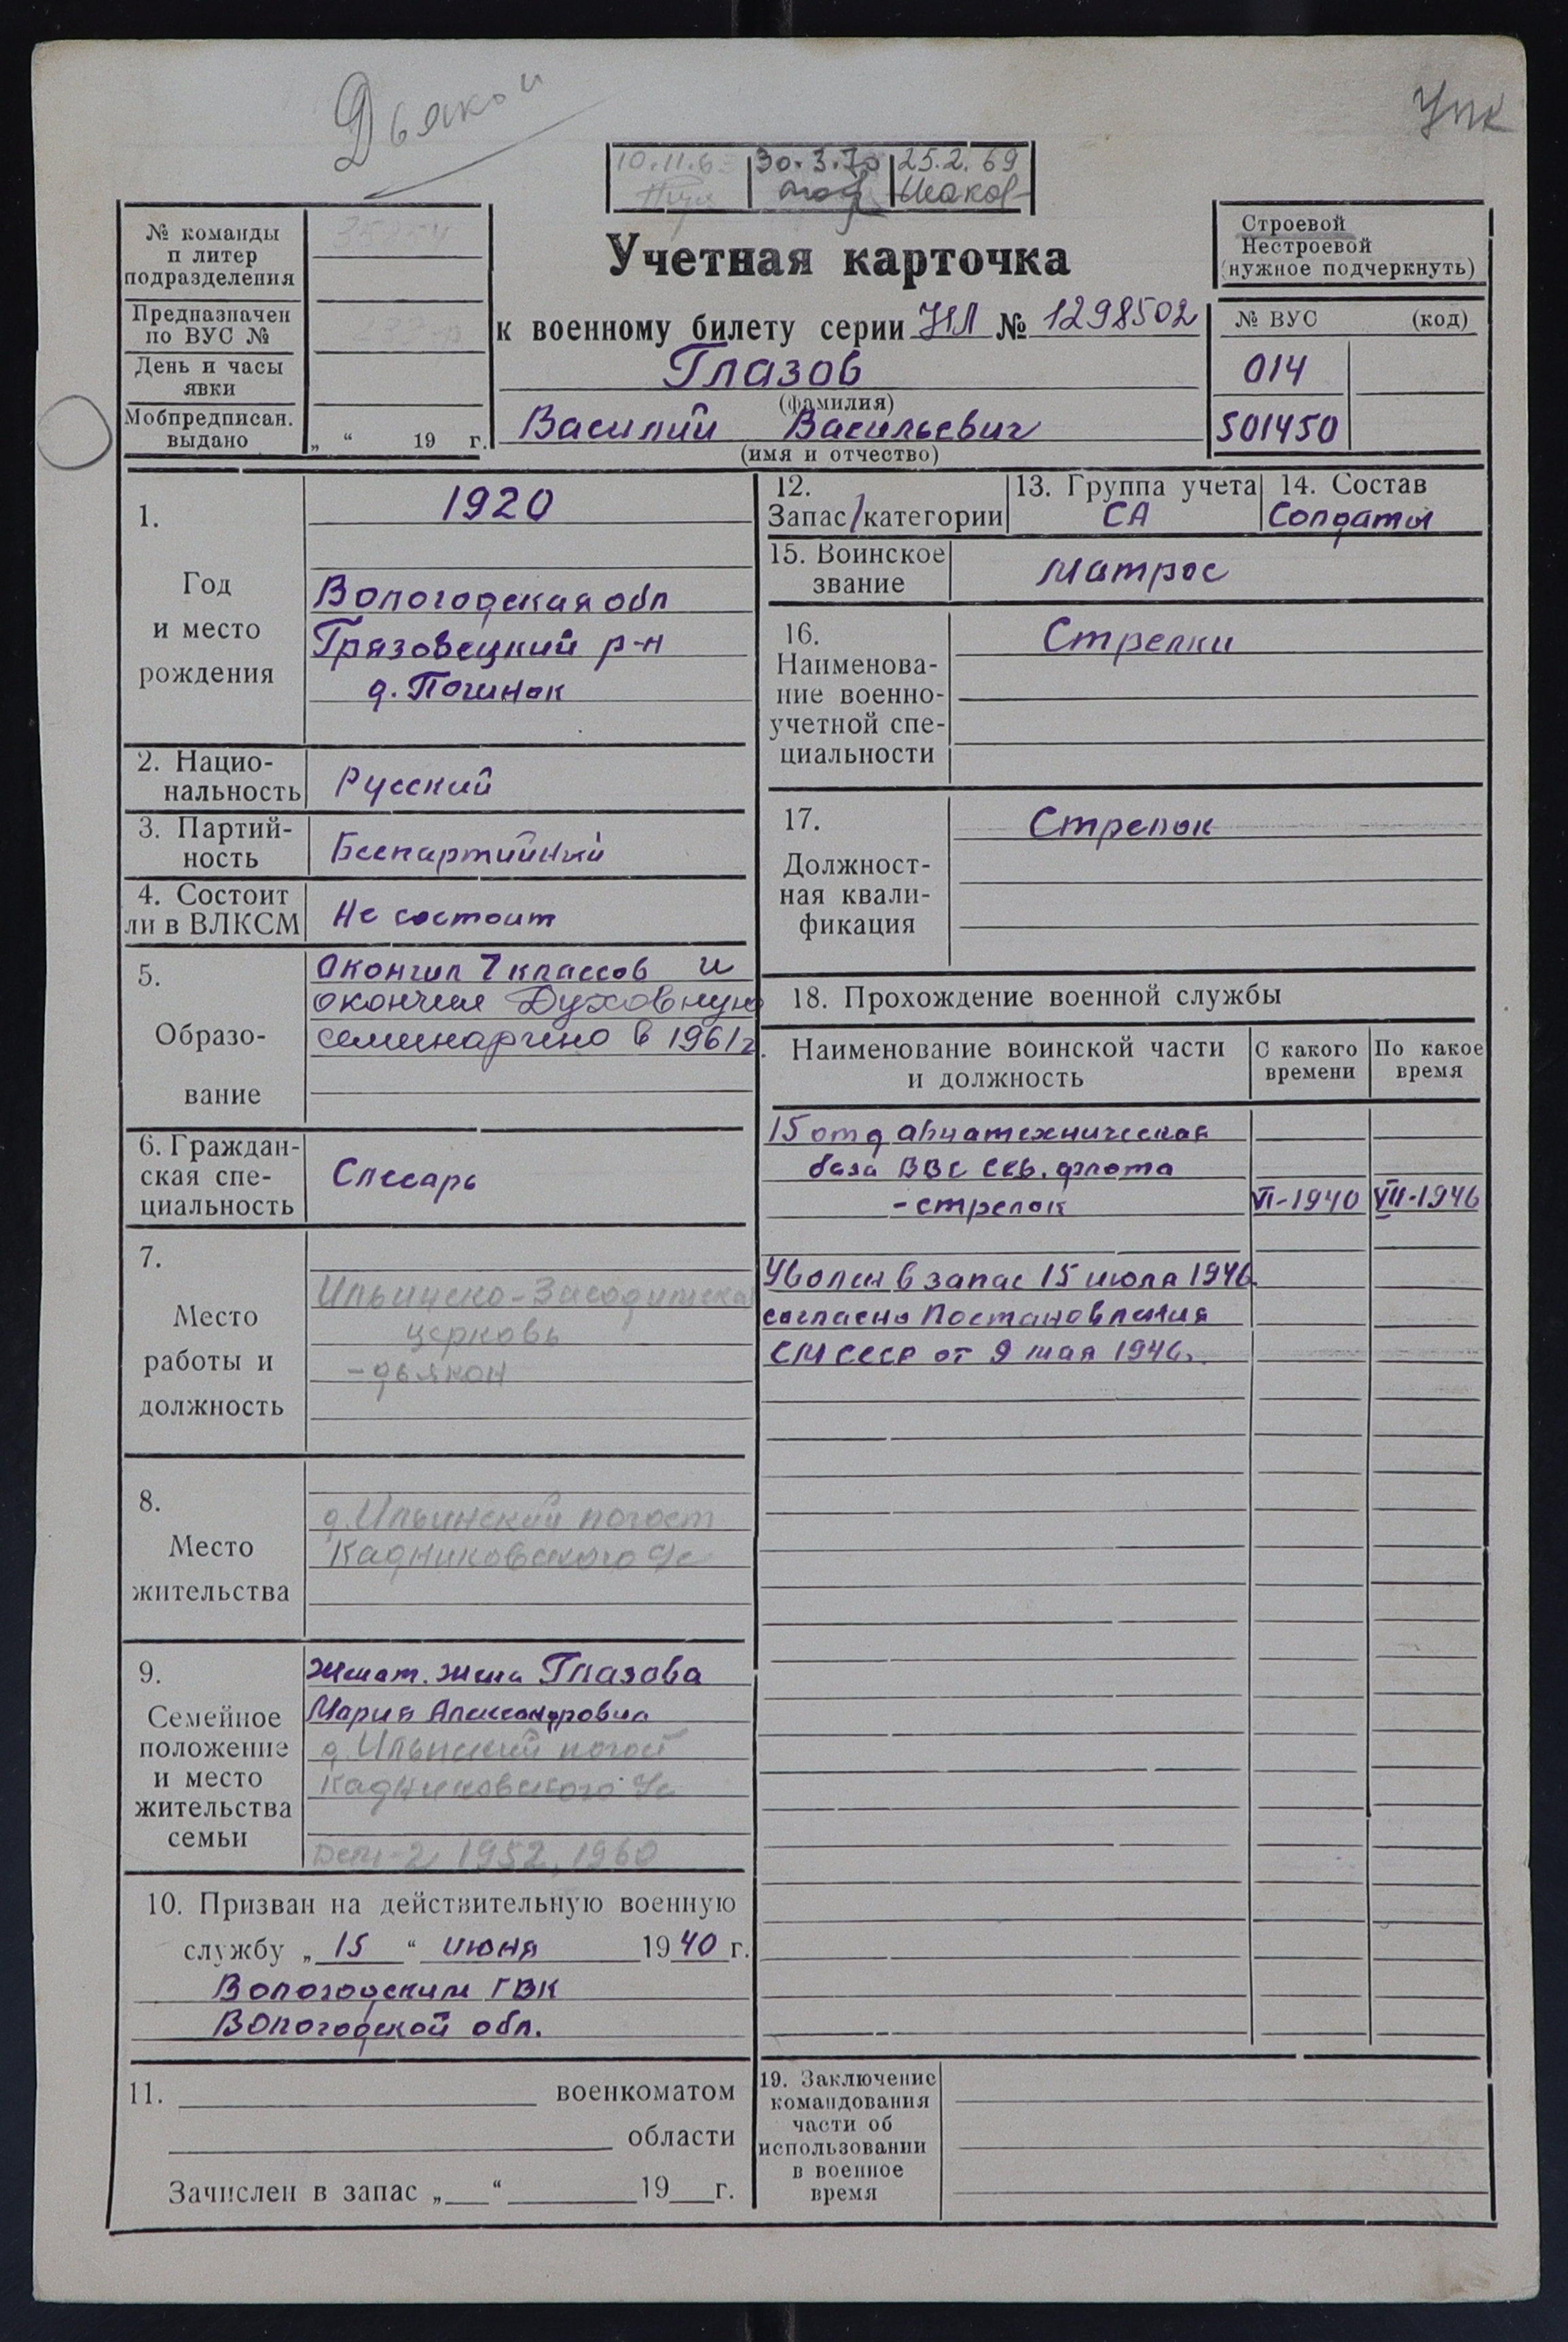 Дьякон
УПК
10.11.63 30.3.70 25.2.69
№ команды
п литер
подразделения
Предназначен
по ВУС №
День и часы
явки
Мобпредписан.
выдано
„ “ 19 г.
Учетная карточка
к военному билету серии НЛ № 1298502
Глазов
(фамилия)
Василий Васильевич
(имя и отчество)
Строевой
Нестроевой
(нужное подчеркнуть)
№ ВУС (код)
014
501450
1.
Год
и место
рождения
1920
Вологодская обл
Грязовецкий р-н
д. Починок
2. Нацио-
нальность
Русский
3. Партий-
ность
Беспартийный
4. Состоит
ли в ВЛКСМ
Не состоит
5.
Образо-
вание
Окончил 7 классов и
окончил Духовную
семинарию в 1961 г.
6. Граждан-
ская спе-
циальность
Слесарь
7.
Место
работы и
должность
церковь
-дьякон
8.
Место
жительства
д. Ильинский погост
Кадниковского с/с
9.
Семейное
положение
и место
жительства
семьи
Женат. жена Глазова
Мария Александровна
д. Ильинский погост
Кадниковского с/с
Дети-2 1952, 1960
10. Призван на действительную военную
службу „ 15 “ июня 1940 г.
Вологодским ГВК
Вологодской обл.
11. военкоматом
области
Зачислен в запас „ “ 19 г.
12.
Запас/категории
13. Группа учета
СА
14. Состав
Солдаты
15. Воинское
звание
матрос
16.
Наименова-
ние военно-
учетной спе-
циальности
Стрелки
17.
Должност-
ная квали-
фикация
Стрелок
18. Прохождение военной службы
Наименование воинской части
и должность
С какого
времени
По какое
время
15 отд авиатехническая
база ВВС Сев. флота
-стрелок VI-1940 VII-1946
Уволен в запас 15 июля 1946
согласно Постановления
СМ СССР от 9 мая 1946.
19. Заключение
командования
части об
использовании
в военное
время